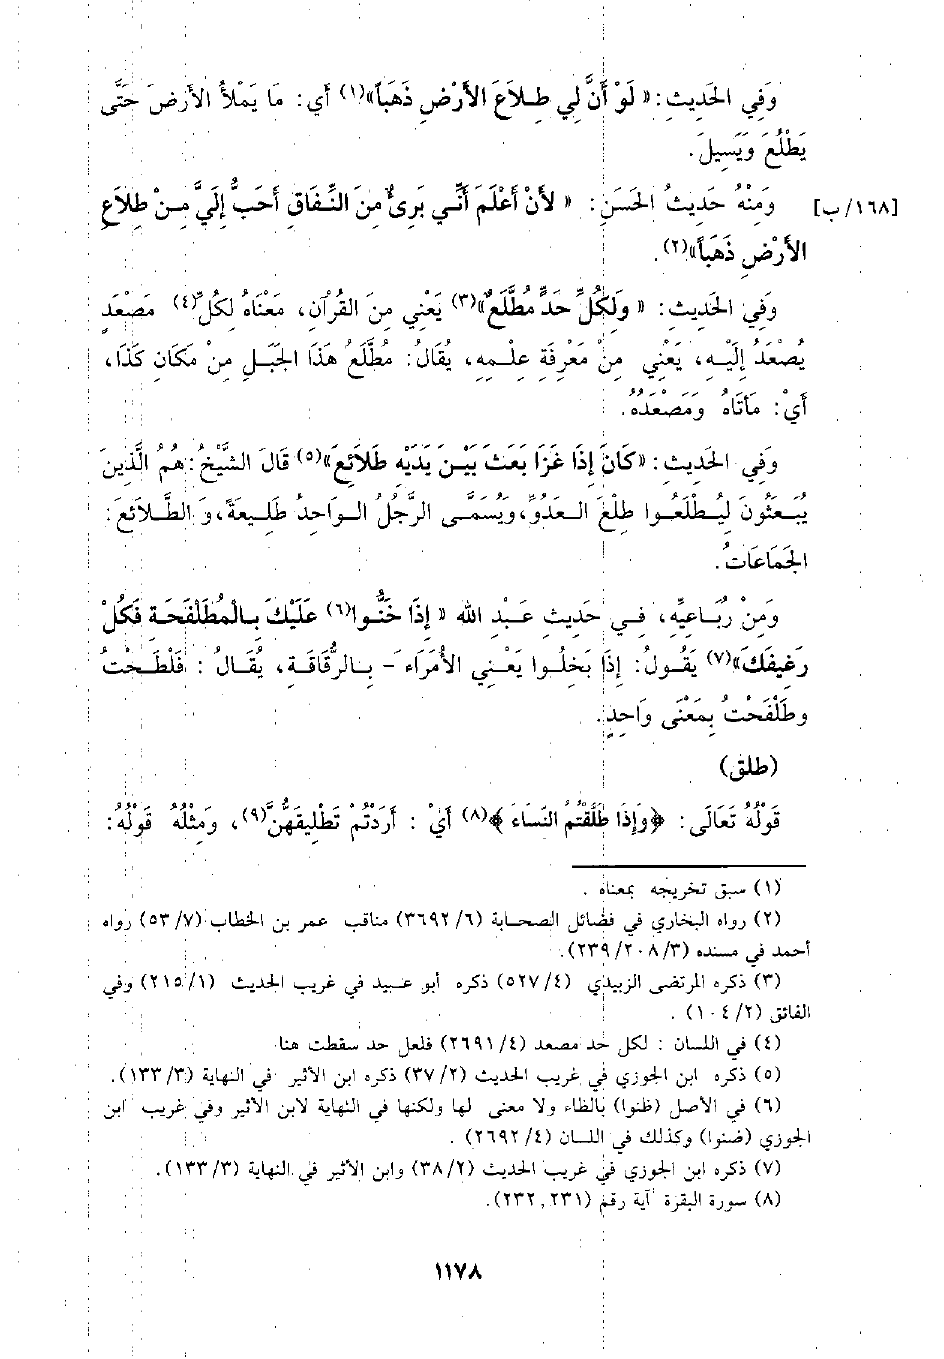 وَفِي الحَدِيثِ: « لَوْ أَنَّ لِي طِلَاعَ الأَرْضِ ذَهَباً»(١) أَي: مَا يَمْلأُ الأَرْضَ حَتَّى
يَطْلُعَ وَيَسِيلَ.
[١٦٨/ب] وَمَنْهُ حَدِيثُ الحَسَنِ: « لأَنْ أَعْلَمَ أَنِّي بَرِئٌ مِنَ النِّفَاقِ أَحَبُّ إِلَيَّ مِنْ طِلَاعِ
الأَرْضِ ذَهَبَاً»(٢).
وَفِي الحَدِيثِ: « وَلَكُلِّ حَدٍّ مُطَّلَعٌ»(٣) يَعْنِي مِنَ القُرْآنِ، مَعْنَاهُ لِكُلِّ(٤) مَصْعَدٍ
يُصْعَدُ إِلَيْهِ، يَعْنِي مِنْ مَعْرِفَةِ عِلْمِهِ، يُقَالُ: مُطَّلَعُ هَذَا الجَبَلِ مِنْ مَكَانِ كَذَا،
أَيْ: مَأتَاهُ وَمَصْعَدُهُ.
وَفِي الحَدِيثِ: «كَانَ إِذَا غَزَا بَعَثَ بَيْنَ يَدَيْهِ طَلَائِعَ»(٥) قَالَ الشَّيْخُ: هُمُ الَّذِينَ
يُبَعَثُونَ لِيُطْلَعُوا طِلْعَ العَدُوِّ، وَيُسَمَّى الرَّجُلُ الوَاحِدُ طَلِيعَةً، وَ الطَّلَائَعَ:
الجَمَاعَاتُ.
وَمِنْ رُبَاعِيِّهِ، فِي حَدِيثِ عَبْدِ الله « إِذَا خَنُّوا(٦) عَلَيْكَ بِالْمُطَلْفَحَةِ فَكُلْ
رَغِيفَكَ»(٧) يَقُولُ: إِذَا بَخِلُوا يَعْنِي الأُمَرَاءَ - بِالرُّقَاقَةِ، يُقَالُ : فَلْطَحْتُ
وطَلْفَحْتُ بِمَعْنَى وَاحِدٍ.
(طلق)
قَوْلُهُ تَعَالَى: ﴿وَإِذَا طَلَّقْتُمُ النِّسَاءَ ﴾(٨) أَيْ : أَرَدْتُمْ تَطْلِيقَهُنَّ(٩)، وَمِثْلُهُ قَوْلُهُ:
(١) سبق تخريجه بمعناه .
(٢) رواه البخاري في فضائل الصحابة (٣٦٩٢/٦) مناقب عمر بن الخطاب (٥٣/٧) رواه
أحمد في مسنده (٢٣٩/٢٠٨/٣).
(٣) ذكره المرتضى الزبيدي (٥٢٧/٤) ذكره أبو عبيد في غريب الحديث (٢١٥/١) وفي
الفائق (١٠٤/٢) .
(٤) في اللسان : لكل حد مصعد (٢٦٩١/٤) فلعل حد سقطت هنا
(٥) ذكره ابن الجوزي في غريب الحديث (٣٧/٢) ذكره ابن الأثير في النهاية (١٣٣/٣).
(٦) في الأصل (ظنوا) بالظاء ولا معنى لها ولكنها في النهاية لابن الأثير وفي غريب ابن
الجوزي (ضنوا) وكذلك في اللسان (٢٦٩٢/٤) .
(٧) ذكره ابن الجوزي في غريب الحديث (٣٨/٢) وابن الأثير في النهاية (١٣٣/٣).
(٨) سورة البقرة آية رقم (٢٣٢,٢٣١).
١١٧٨